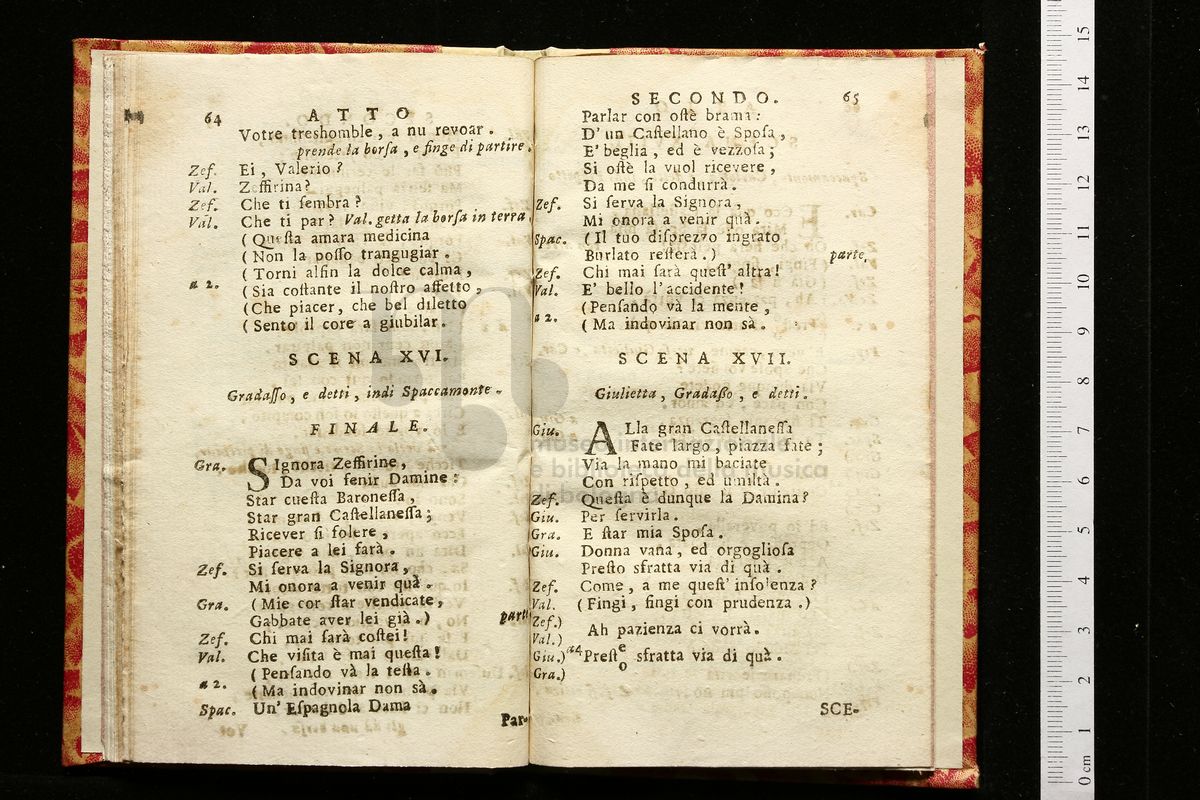 64 ATTO
Votre treshomble, a nu revoar.
prende la borſa, e finge di partire.
Zef. Ei, Valerio?
Val. Zeffirina?
Zef. Che ti ſembra?
Val. Che ti par? Val. getta la borſa in terra.
(Queſta amara medicina
(Non la poſſo trangugiar.
(Torni alfin la dolce calma,
a 2. (Sia coſtante il noſtro affetto,
(Che piacer, che bel diletto
(Sento il core a giubilar.
SCENA XVI.
Gradaſſo, e detti, indi Spaccamonte.
FINALE.
Gra. SIgnora Zeffirine,
Da voi fenir Damine:
Star cueſta Baroneſſa,
Star gran Caſtellaneſſa;
Ricever ſi folere,
Piacere a lei farà.
Zef. Si ſerva la Signora,
Mi onora a venir quà.
Gra. (Mie cor ſtar vendicate,
Gabbate aver lei già.) parte
Zef. Chi mai ſarà coſtei!
Val. Che viſita è mai queſta!
(Penſando và la teſta.
a 2. (Ma indovinar non sà.
Spac. Un' Eſpagnola Dama
Par-
SECONDO. 65
Parlar con oſtè brama:
D' un Caſtellano è Spoſa,
E' beglia, ed è vezzoſa;
Si oſtè la vuol ricevere,
Da me ſi condurrà.
Zef. Si ſerva la Signora,
Mi onora a venir quà.
Spac. (Il tuo diſprezzo ingrato
Burlato reſterà.) parte.
Zef. Chi mai ſarà queſt' altra!
Val. E' bello l' accidente!
(Penſando và la mente,
a 2. (Ma indovinar non sà.
SCENA XVII.
Giulietta, Gradaßo, e detti.
Giu. ALla gran Caſtellaneſſa
Fate largo, piazza fate;
Via la mano mi baciate
Con riſpetto, ed umiltà.
Zef. Queſta è dunque la Damina?
Giu. Per ſervirla.
Gra. E ſtar mia Spoſa.
Giu. Donna vana, ed orgoglioſa
Preſto sfratta via di quà.
Zef. Come, a me queſt' inſolenza?
Val. (Fingi, fingi con prudenza.)
Zef.)
Val.) Ah pazienza ci vorrà.
Giu.) a4 Preſt e o sfratta via di quà.
Gra.)
SCE-
museo internazionale
e biblioteca della musica
di bologna
0 cm 1 2 3 4 5 6 7 8 9 10 11 12 13 14 15